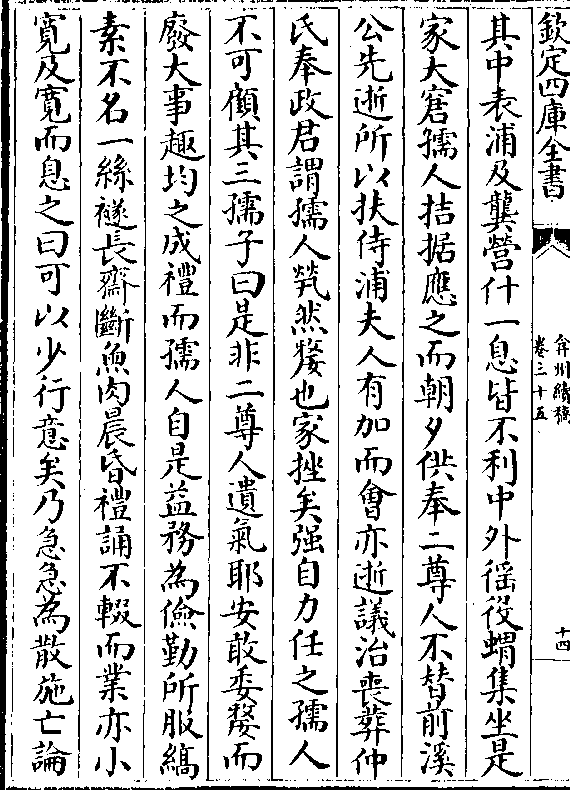 欽定四庫全書
弇州續稿
卷三十五
十四
其中表浦及龔營什一息皆不利中外徭役蝟集坐是
家大窘孺人拮据應之而朝夕供奉二尊人不替前溪
公先逝所以扶侍浦夫人有加而會亦逝議治喪葬仲
氏奉政君謂孺人煢然嫠也家挫矣强自力任之孺人
不可顧其三孺子曰是非二尊人遺氣耶安敢委嫠而
廢大事趣均之成禮而孺人自是益務為儉勤所服縞
素不名一絲襚長齋斷魚肉晨昏禮誦不輟而業亦小
寛及寛而息之曰可以少行意矣乃急急為散施亡論